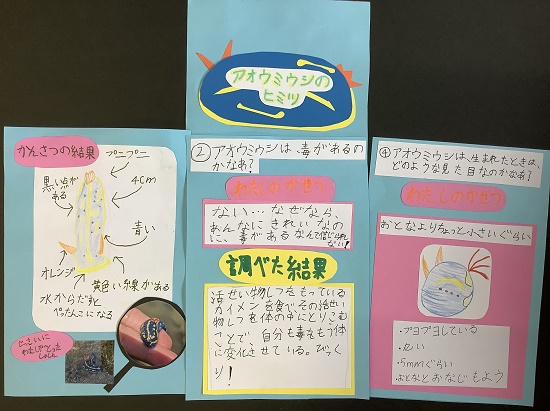 アオウミウシの
ヒミツ
かんさつの結果
プニプニ
黒い点が
ある
4cm
青い
オレンジ
黄色い線がある
水からだすと
ぺったんこになる
じっさいに
わたしがとった
② アオウミウシは、毒があるの
かなぁ?
わたしのかせつ
ない…なぜなら、
あんなにきれいなの
に、毒があるなんて信じられ
ない!
調べた結果
活せい物しつをもっている
カイメンを食べその活せい
物しつを体の中にとりこむ
ことで、自分も毒をもう体
に変化させている。びっく
り!
④アオウミウシは、生まれたときは、
どのような見た目なのかなぁ?
わたしのかせつ
おとなよりちょっと小さいぐらい
・プヨプヨしている
・5mmぐらい
・おとなとおなじもよう